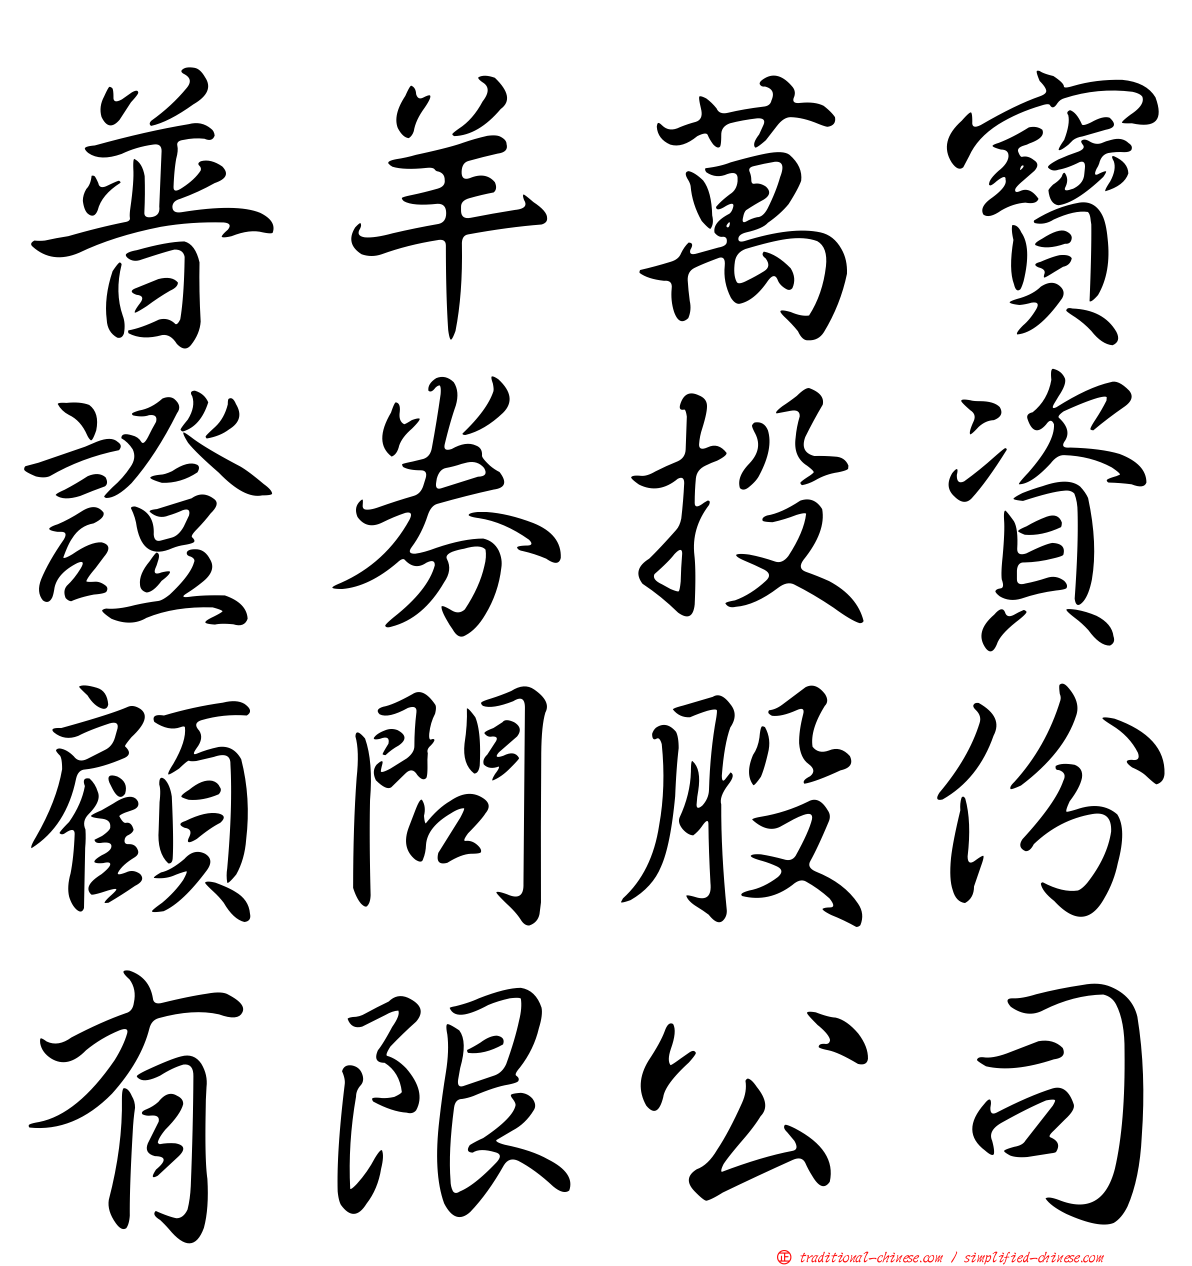 普羊萬寶
證券投資
顧問股份
有限公司
㊣ traditional-chinese.com / simplified-chinese.com